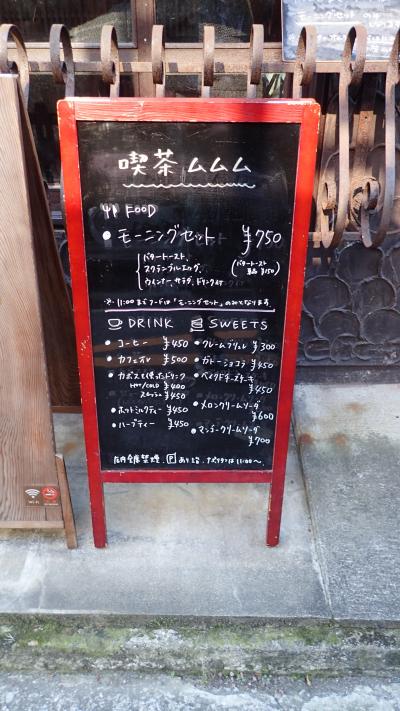 喫茶ムムム
FOOD
• モーニングセット ¥750
バタートースト、
スクランブルエッグ、
ウインナー、サラダ、ドリンク付
(バタートースト
単品 ¥150)
※ 11:00までフードは「モーニングセット」のみとなります
DRINK
• コーヒー ¥450
• カフェオレ ¥500
• カボスを使ったドリンク
HOT/COLD ¥400
¥450
• ホットミルクティー ¥450
• ハーブティー ¥450
SWEETS
• クレームブリュレ ¥300
• ガトーショコラ ¥450
• ベイクドチーズケーキ
¥450
• メロンクリームソーダ
¥600
• マンキークリームソーダ
¥700
店内全席禁煙、P あります。ナポリタンは11:00〜
Wi-Fi